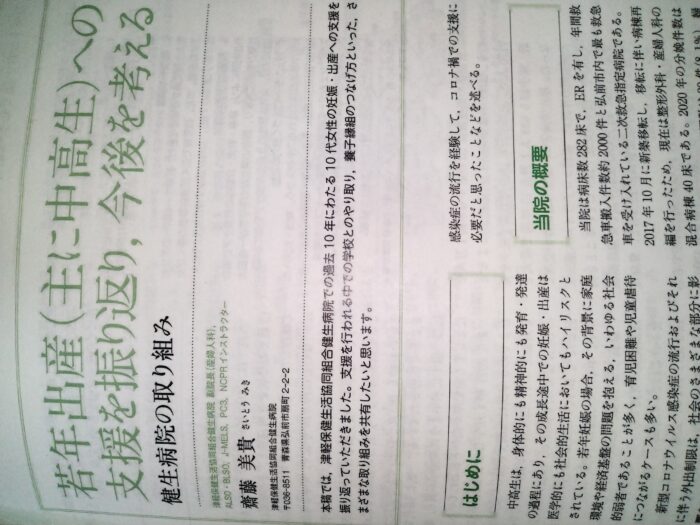 若年出産(主に中高生)への
支援を振り返り，今後を考える
健生病院の取り組み
津軽保健生活協同組合健生病院 副院長(産婦人科),
ALSO・BLSO, J-MELS, PC3, NCPRインストラクター
齋藤 美貴 さいとう みき
津軽保健生活協同組合健生病院
〒036-8511 青森県弘前市扇町2-2-2
本稿では，津軽保健生活協同組合健生病院での過去10年にわたる10代女性の妊娠・出産への支援を
振り返っていただきました。支援を行われる中での学校とのやり取り，養子縁組のつなげ方といった，さ
まざまな取り組みを共有したいと思います。
はじめに
中高生は，身体的にも精神的にも発育・発達
の過程にあり，その成長途中での妊娠・出産は
医学的にも社会的生活においてもハイリスクと
されている。若年妊娠の場合，その背景に家庭
環境や経済基盤の問題を抱える，いわゆる社会
的弱者であることが多く，育児困難や児童虐待
につながるケースも多い。
新型コロナウイルス感染症の流行およびそれ
に伴う外出制限は，社会のさまざまな部分に影
感染症の流行を経験して，コロナ禍での支援に
必要だと思ったことなどを述べる。
当院の概要
当院は病床数282床で，ERを有し，年間救
急車搬入件数約2000件と弘前市内で最も救急
車を受け入れている二次救急指定病院である。
2017年10月に新築移転し，移転に伴い病棟再
編を行ったため，現在は整形外科・産婦人科の
混合病棟40床である。2020年の分娩件数は